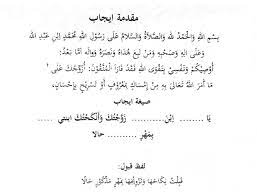 مقدمة ايجاب
بِسْمِ اللهِ وَالْحَمْدُ للهِ وَالصَّلَاةُ وَالسَّلَامُ عَلَى رَسُوْلِ اللهِ مُحَمَّدِ ابْنِ عَبْدِ اللهِ
وَعَلَى الِهِ وَصَحْبِهِ وَمَنْ تَبِعَ هُدَاهُ وَنَصَرَهُ وَوَالَه أَمَّا بَعْدُ:
أُوْصِيْكُمْ وَنَفْسِيْ بِتَقْوَى اللهِ فَقَدْ فَازَا الْمُتَّقُوْنَ: أُزَوِّجُكَ عَلَى
مَا أَمَرَ اللهُ تَعَالَى بِهِ مِنْ اِمْسَاكٍ بِمَعْرُوْفٍ أَوْ تَسْرِيْحٍ بِإِحْسَانٍ،
صيغة ايجاب
يَا ....... اِبْنَ ....... زَوَّجْتُكَ وَأَنْكَحْتُكَ ابنتي .......
بِمَهْرِ ....... حالا
لفظ قبول:
قَبِلْتُ نِكَاحَهَا وَتَزْوِيْجَهَا بِمَهْرٍ مَذْكُوْرٍ حَالًا